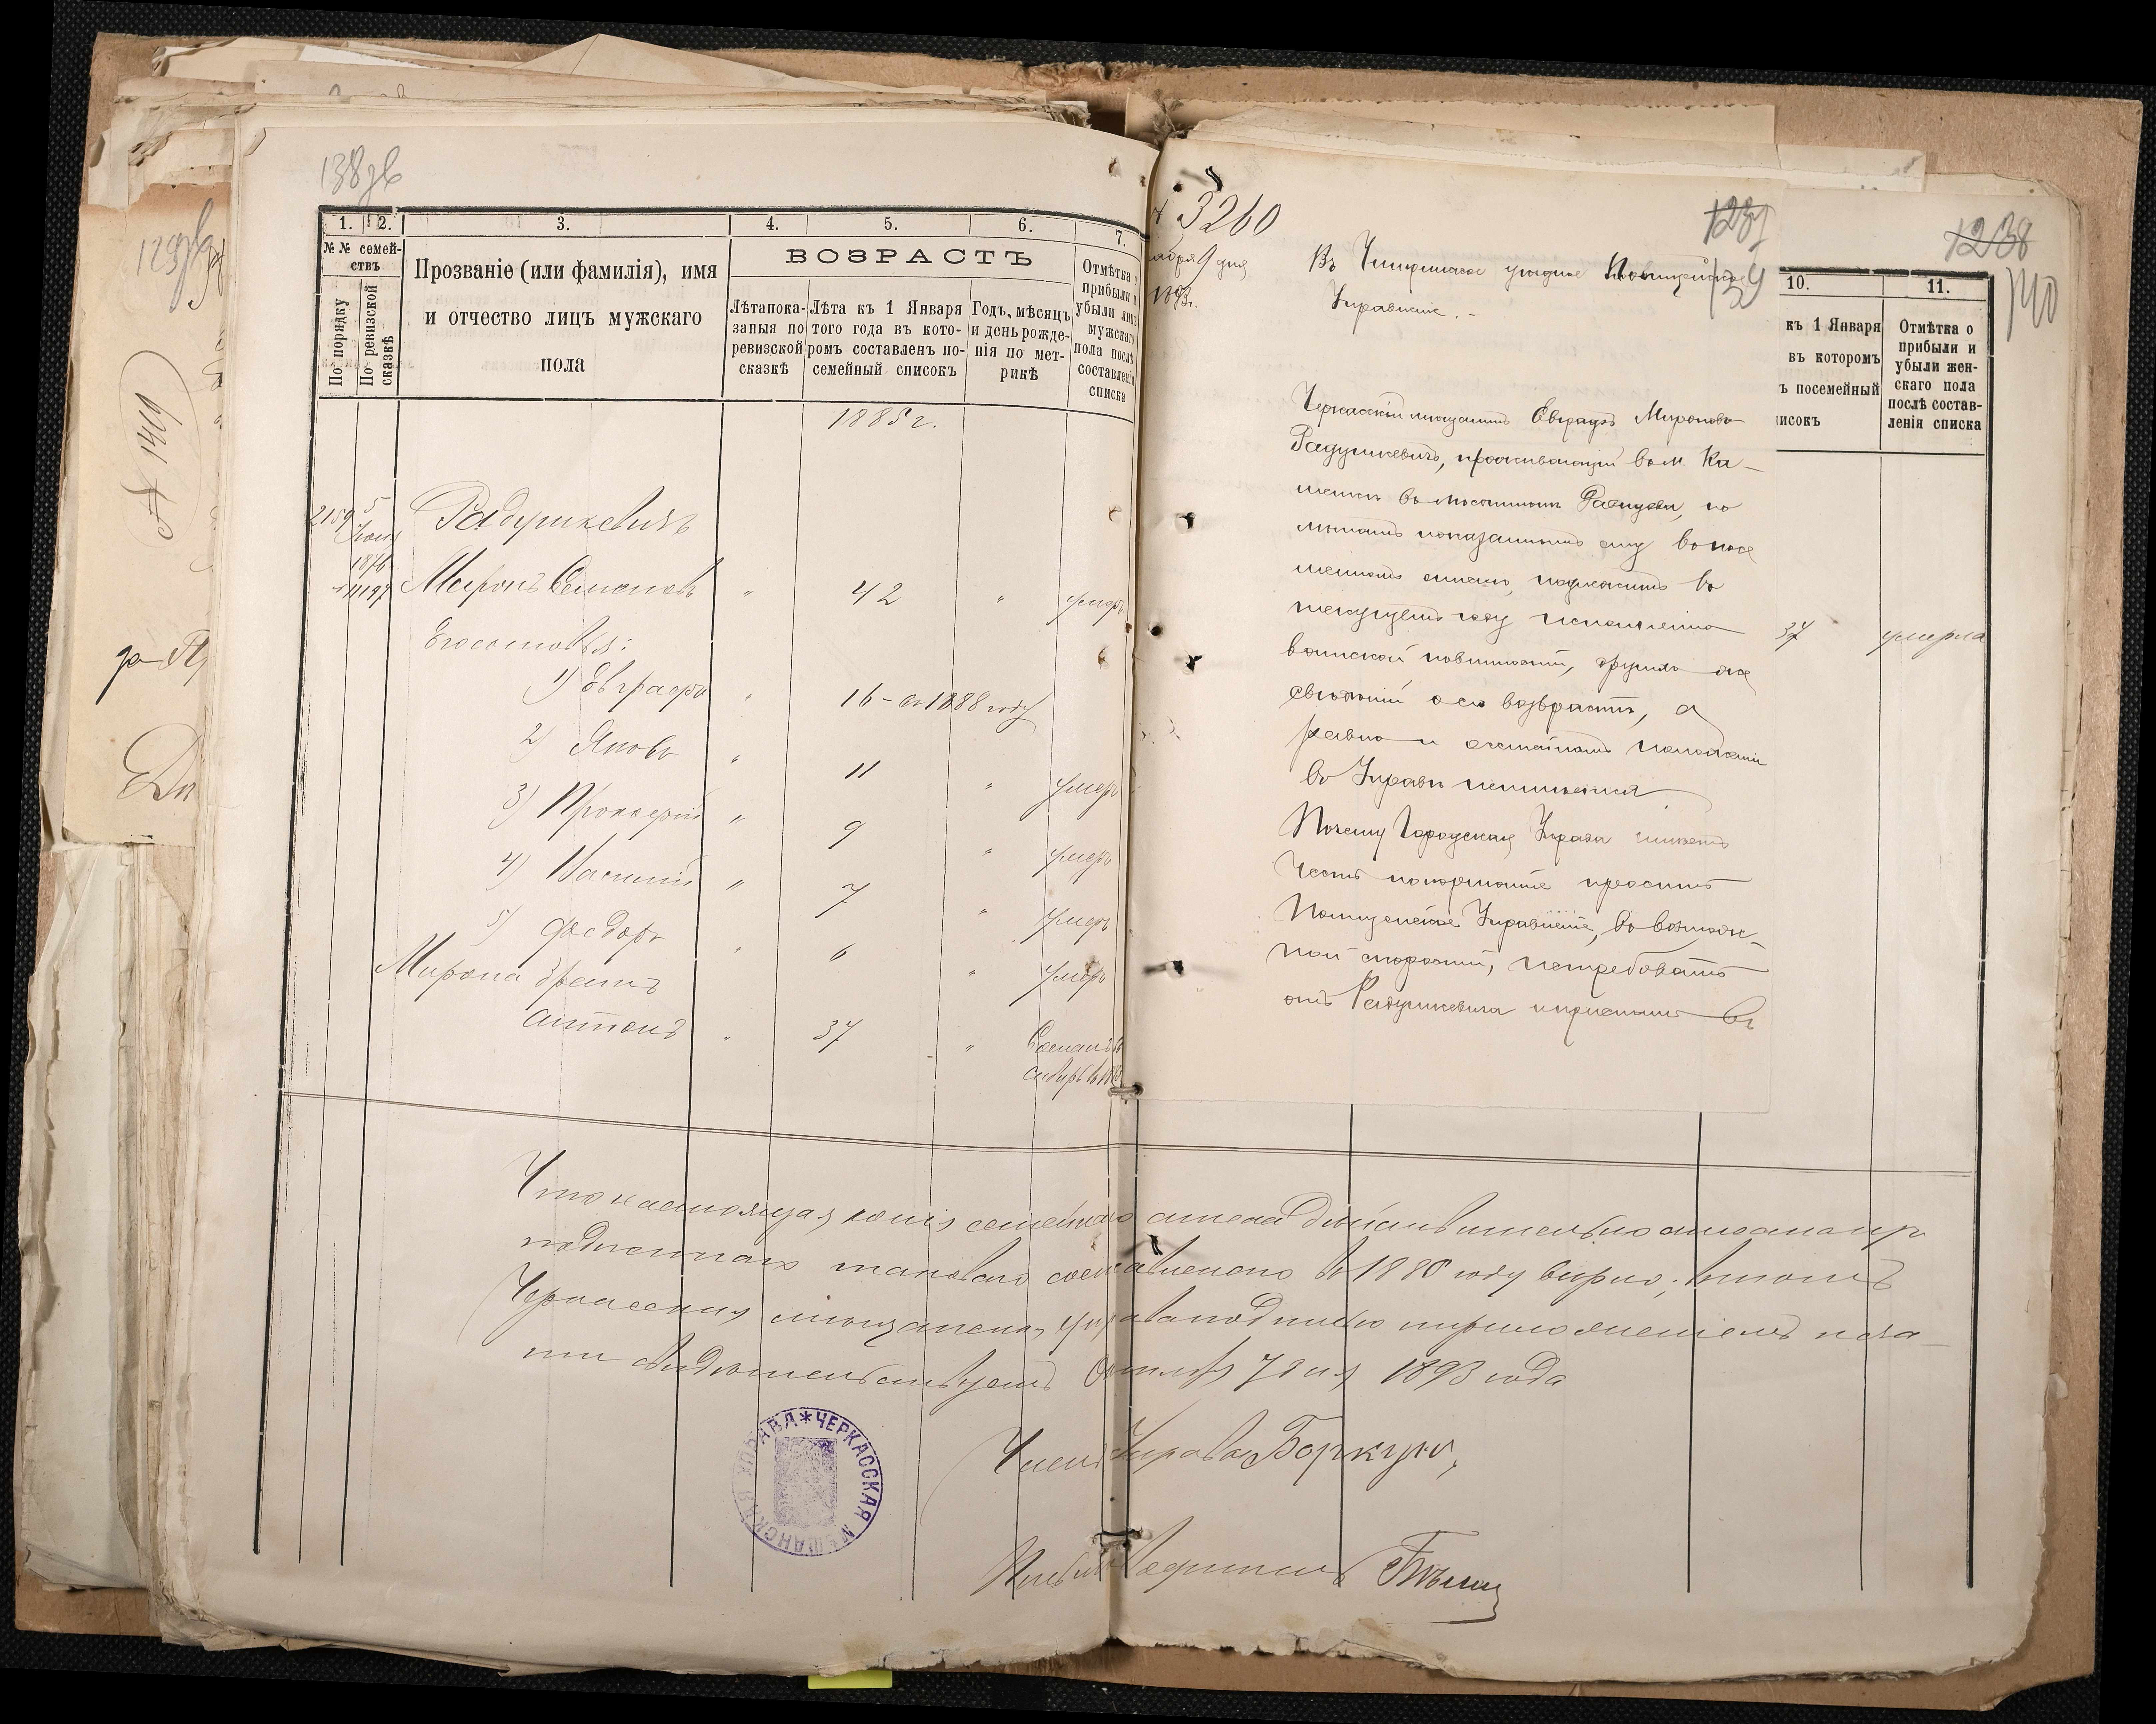 138 зв
1. 2. 3. 4. 5. 6. 7.
№№ семей-
ствъ
По порядку
По ревизской
сказкѣ
Прозваніе (или фамилія), имя
и отчество лицъ мужскаго
пола
ВОЗРАСТЪ
Лѣта пока-
заныя по
ревизской
сказкѣ
Лѣта къ 1 Января
того года въ кото-
ромъ составленъ по-
семейный списокъ
Годъ, мѣсяцъ
и день рожде-
нія по мет-
рикѣ
Отмѣтка о
прибыли и
убыли лицъ
мужскаго
пола послѣ
составленія
списка
1885 г.
2159 5
1876
11197
Радушкевичъ
Миронъ Семеновъ " 42 " умеръ
Его сыновья:
1) Евграфъ " 16 - въ 1888 году
2) Яковъ " 11 " умеръ
3) Прокофій " 9 " умеръ
4) Василій " 7 " умеръ
5) Федоръ " 6 " умеръ
Мирона братъ
Антонъ " 37 " Сосланъ въ
Сибирь въ
Что настоящая копія семейнаго списка дѣйствительно списана изъ
подлиннаго таковаго составленнаго въ 1885 году вѣрно, въ томъ
Черкасская мѣщанская управа подписью и приложеніемъ печа-
ти свидѣтельствуетъ Октября 7 дня 1893 года
Членъ Управы Боркунъ
Письмоводитель
ЧЕРКАССКАЯ МѢЩАНСКАЯ УПРАВА
3260
9 дня
1893 г.
1237
139
Въ Чигиринское уѣздное Полицейское
Управленіе.
Черкасскій мѣщанинъ Евграфъ Мироновъ
Радушкевичъ, проживающій въ м. Ка-
менкѣ въ мѣстности, по
лѣтамъ показаннымъ ему въ посе
мейномъ спискѣ, подлежитъ въ
текущемъ году исполненію
воинской повинности, другихъ же
свѣдѣній о его возрастѣ, а
равно и семейномъ положеніи
въ Управѣ не имѣется
Почему Городская Управа имѣетъ
честь покорнѣйше просить
Полицейское Управленіе, въ возмож-
ной скорости, истребовать
отъ Радушкевича и прислать въ
1238
140
10. 11.
къ 1 Января
въ которомъ
ъ посемейный
исокъ
Отмѣтка о
прибыли и
убыли жен-
скаго пола
послѣ состав-
ленія списка
37 умерла
№ 1409